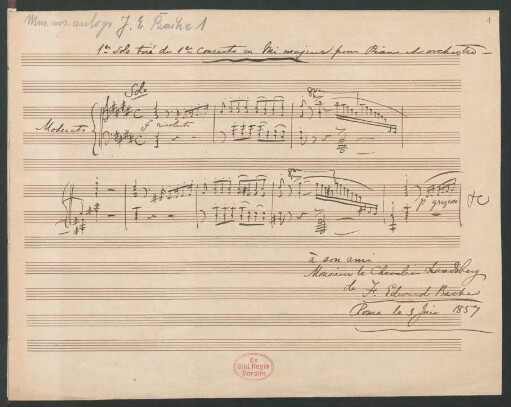 Mus. ms. autogr. J. E. Bache 1
1
1er Solo tiré du 1er Concerto en Mi majeur pour Piano et orchestre
Solo
8va
Moderato
f risoluto
8va
p grazioso
&c
à son ami
Monsieur le Chevalier Landsberg
de F. Edward Bache
Rome le 3 Juin 1857
Ex
Bibl. Regia
Berolin.